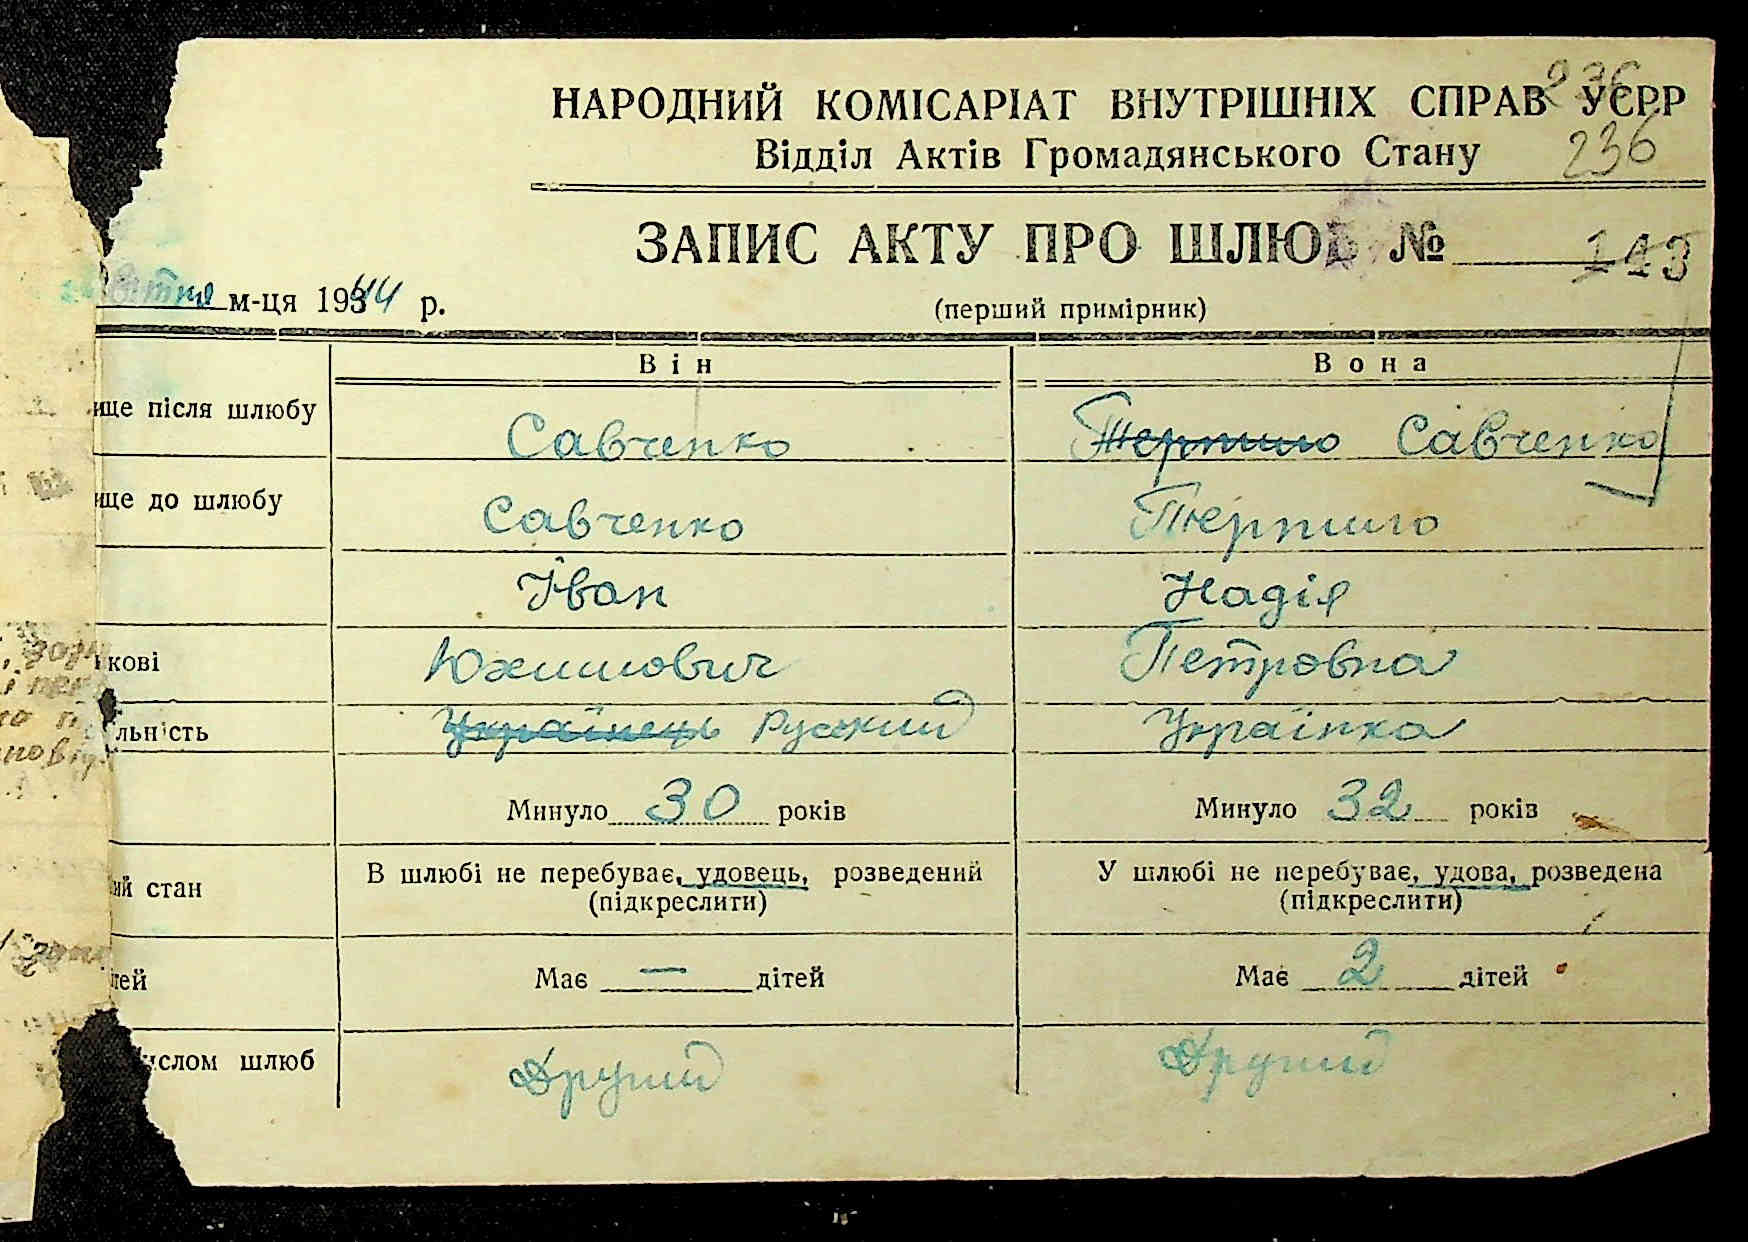 236
НАРОДНИЙ КОМІСАРІАТ ВНУТРІШНІХ СПРАВ УСРР
Відділ Актів Громадянського Стану 236
ЗАПИС АКТУ ПРО ШЛЮБ № 143
м-ця 1944 р. (перший примірник)
Він Вона
ще після шлюбу Савченко Терпило Савченко
ище до шлюбу Савченко Терпило
Іван Надія
кові Юхимович Петровна
льність Українець Русский Українка
Минуло 30 років Минуло 32 років
ий стан В шлюбі не перебуває, удовець, розведений У шлюбі не перебуває, удова, розведена
(підкреслити) (підкреслити)
тей Має — дітей Має 2 дітей
ислом шлюб Другий Другий